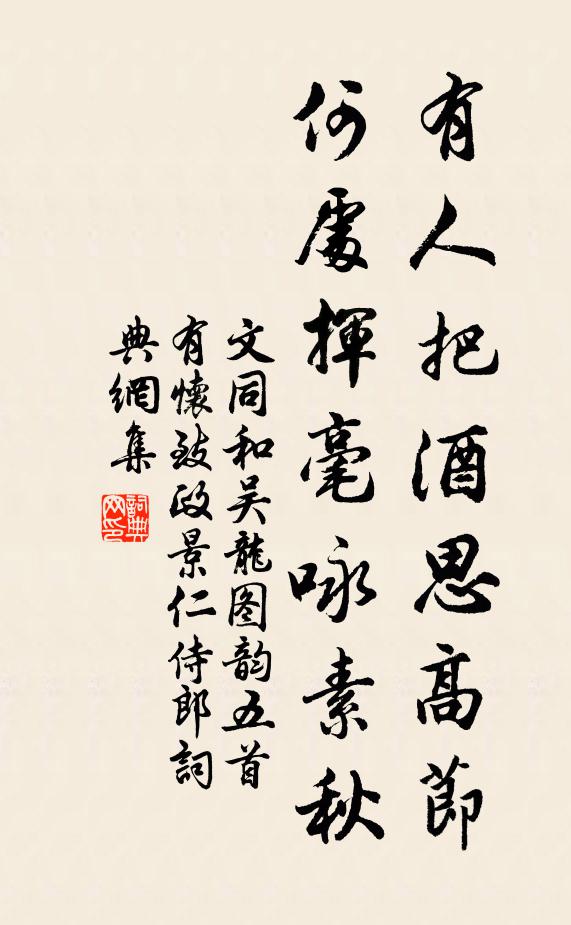 有人把酒思高節
何處揮毫咏素秋
文同和吴龍图韵五首
有懷致政景仁侍郎詞
典網集
詞典网印